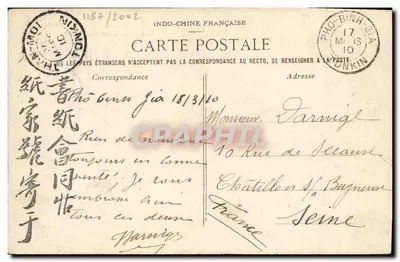 1187/2002
INDO-CHINE FRANÇAISE
CARTE POSTALE
TOUS LES PAYS ÉTRANGERS N'ACCEPTENT PAS LA CORRESPONDANCE AU RECTO, SE RENSEIGNER A LA POSTE
Correspondance
Adresse
PHO-BINH-GIA
17
MARS
10
TONKIN
THAN-MOI
TONKIN
Phô Binh Gia 18/3/10
Rien de nouveau
toujours en bonne
santé, je vous
embrasse
tous les deux
Darnige
Monsieur Darnige
10 Rue de Sceaux
Châtillon s/ Bagneux
Seine
(France)
書紙會同
紙家號寄于
CPARAMA